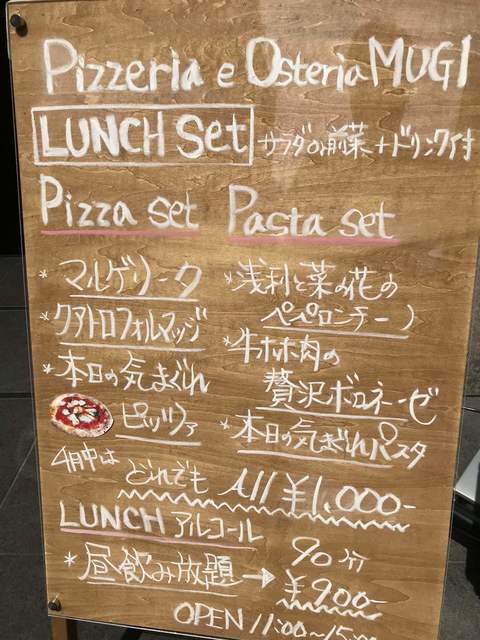 Pizzeria e Osteria MUGI
LUNCH Set サラダor前菜+ドリンク付
Pizza set
*マルゲリータ
*クアトロフォルマッジ
*本日の気まぐれ
ピッツァ
Pasta set
*浅利と菜の花の
ペペロンチーノ
*牛ホホ肉の
贅沢ボロネーゼ
*本日の気まぐれパスタ
4月中は どれでも All ¥1,000-
LUNCH アルコール
*昼飲み放題→ 90分 ¥900-
OPEN 11:00~15:00